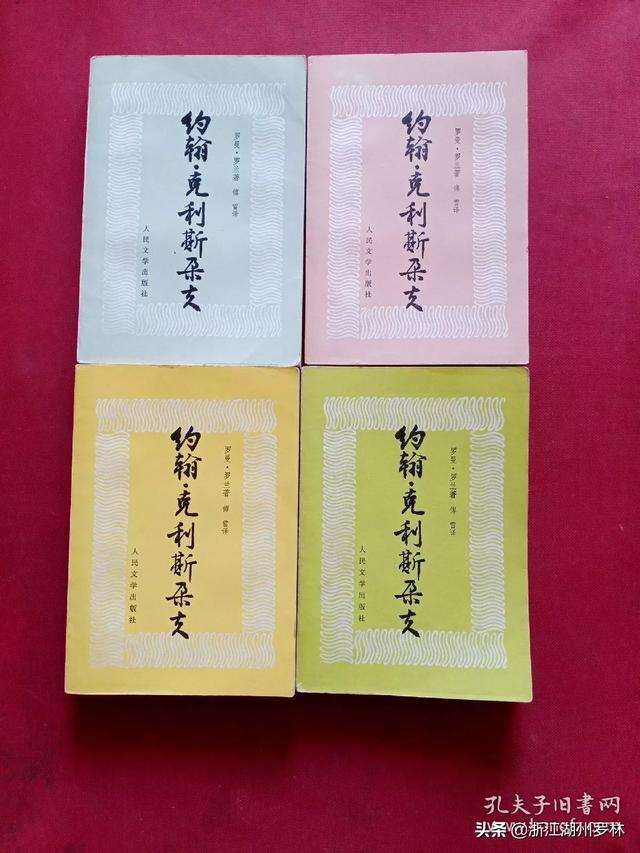 约翰·克利斯朵夫
罗曼·罗兰著 傅雷译
人民文学出版社
约翰·克利斯朵夫
罗曼·罗兰著 傅雷译
人民文学出版社
约翰·克利斯朵夫
罗曼·罗兰著 傅雷译
人民文学出版社
约翰·克利斯朵夫
罗曼·罗兰著 傅雷译
人民文学出版社
孔夫子旧书网
头条 @浙江湖州罗林